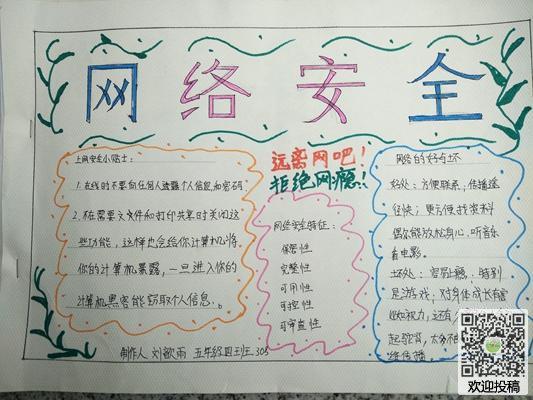 网络安全
上网安全小贴士：
1.在线时不要向任何人透露个人信息和密码
2.在不需要文件和打印共享时关闭这
些功能，这样也会给你计算机将
你的计算机暴露，一旦进入你的
计算机黑客能窃取个人信息。
远离网吧！
拒绝网瘾！
网络安全特征：
保密性
完整性
可用性
可控性
可审查性
网络的好与坏
好处：方便联系，传播途
径快；更方便找资料
偶尔能放松身心，听音乐
看电影。
坏处：容易上瘾，特别
是游戏；对身体成长有害
比如视力，还有
起驼背，太多不
络传播。
制作人 刘歆雨 五年级四班 305
欢迎投稿